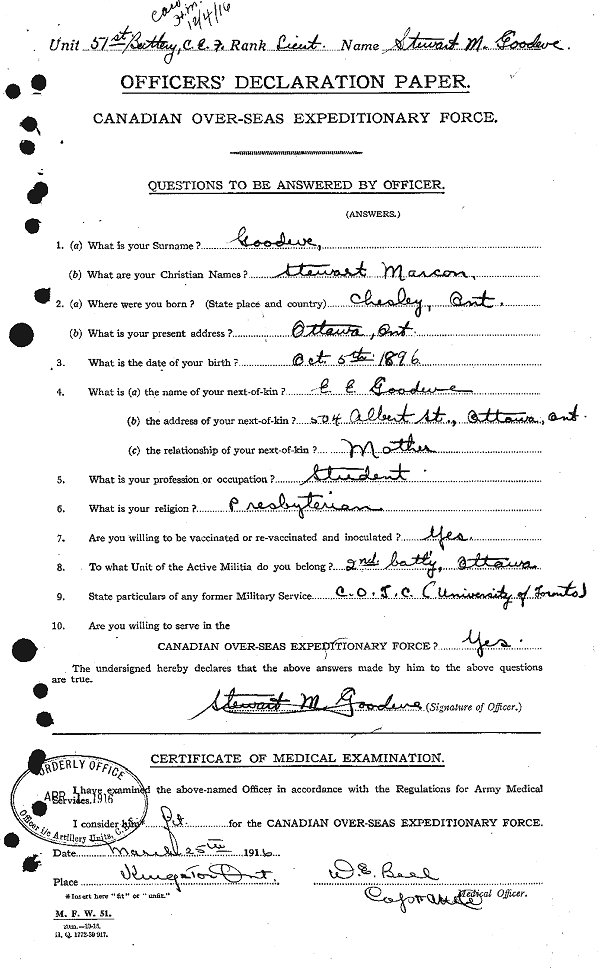 Card
H.M.
12/4/16
Unit 51st Battery, C.E.F. Rank Lieut. Name Stewart M. Goodeve.
OFFICERS' DECLARATION PAPER.
CANADIAN OVER-SEAS EXPEDITIONARY FORCE.
QUESTIONS TO BE ANSWERED BY OFFICER.
(ANSWERS.)
1. (a) What is your Surname? Goodeve,
(b) What are your Christian Names? Stewart Marcon,
2. (a) Where were you born? (State place and country) Chesley, Ont.
(b) What is your present address? Ottawa, Ont.
3. What is the date of your birth? Oct. 5th 1896
4. What is (a) the name of your next-of-kin? E E Goodeve
(b) the address of your next-of-kin? 504 Albert St., Ottawa, Ont.
(c) the relationship of your next-of-kin? Mother
5. What is your profession or occupation? Student
6. What is your religion? Presbyterian
7. Are you willing to be vaccinated or re-vaccinated and inoculated? Yes.
8. To what Unit of the Active Militia do you belong? 2nd. batt'y, Ottawa
9. State particulars of any former Military Service C.O.T.C (University of Toronto)
10. Are you willing to serve in the
CANADIAN OVER-SEAS EXPEDITIONARY FORCE? Yes.
The undersigned hereby declares that the above answers made by him to the above questions
are true.
Stewart M. Goodeve (Signature of Officer.)
CERTIFICATE OF MEDICAL EXAMINATION.
ORDERLY OFFICE
APR 1 1916
Officer i/c Artillery Units,
I have examined the above-named Officer in accordance with the Regulations for Army Medical
Services.
I consider him* fit for the CANADIAN OVER-SEAS EXPEDITIONARY FORCE.
Date March 25th 1916
Place Kingston Ont. W.E. Beel
Medical Officer.
*Insert here "fit" or "unfit."
M. F. W. 51.
H. Q. 1772-39 917.